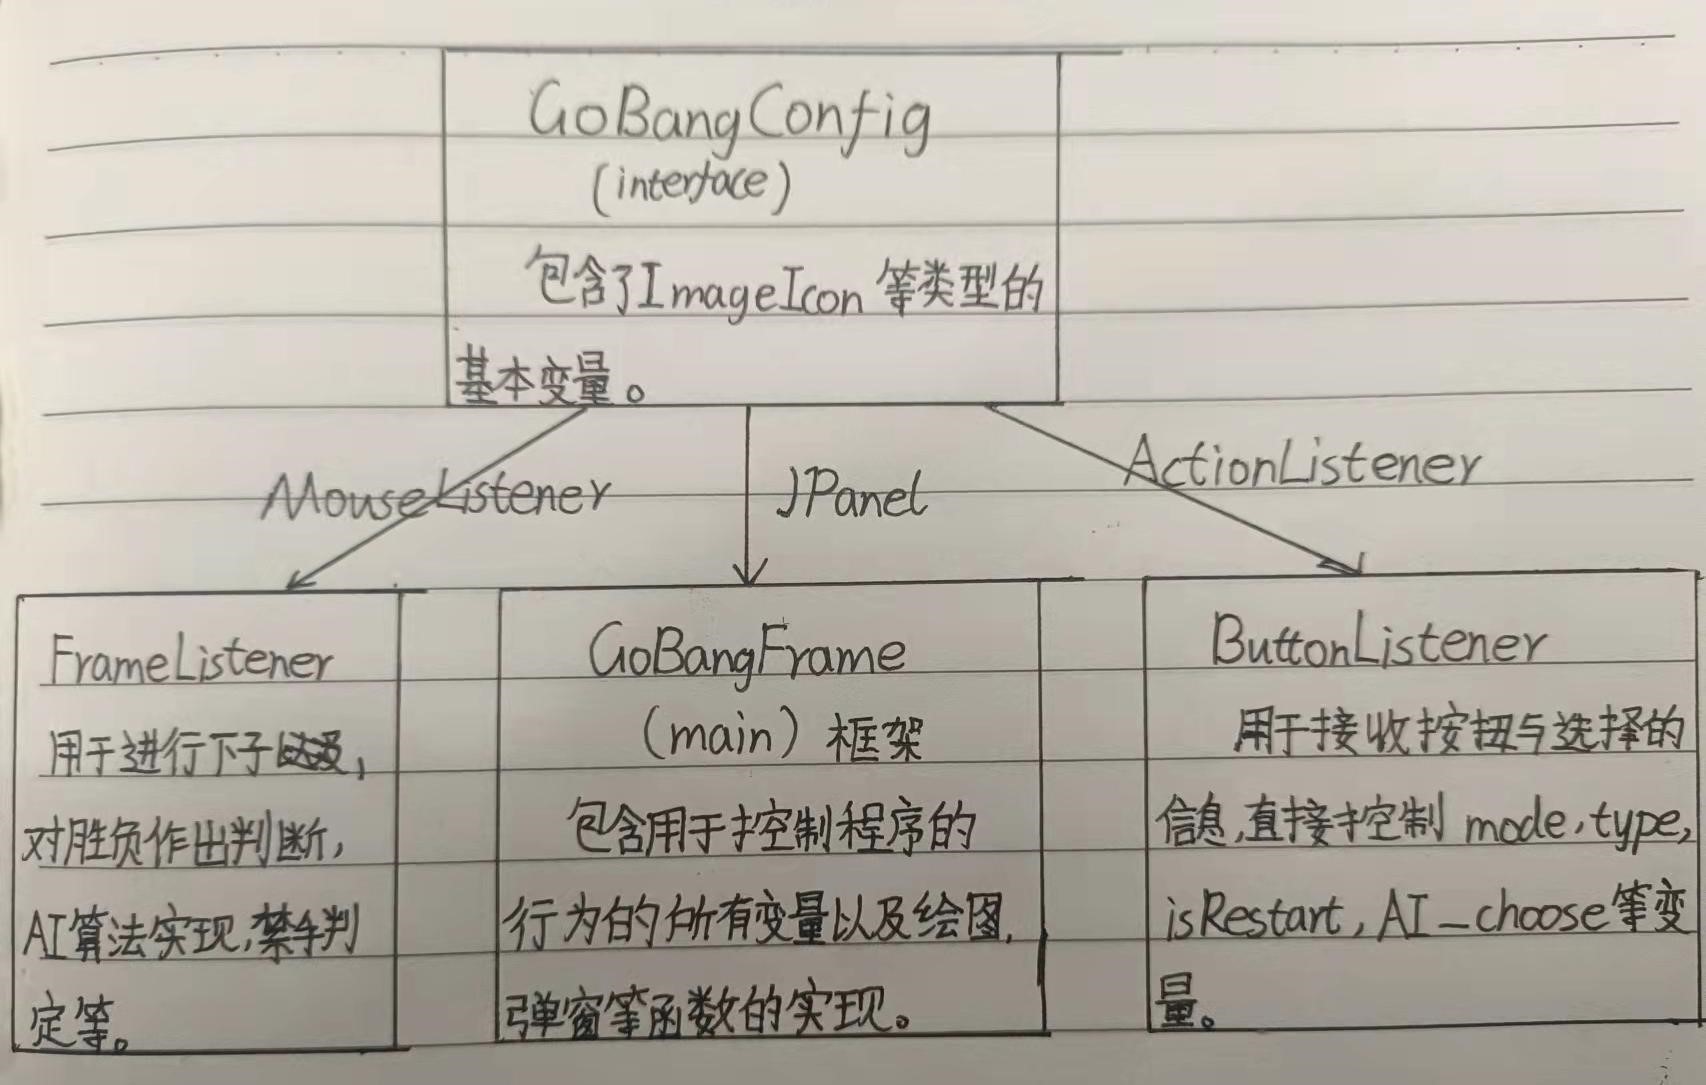 GoBangConfig
(interface)
包含了ImageIcon等类型的
基本变量。
MouseListener
JPanel
ActionListener
FrameListener
用于进行下子,
对胜负作出判断,
AI算法实现,禁手判
定等。
GoBangFrame
(main) 框架
包含用于控制程序的
行为的所有变量以及绘图,
弹窗等函数的实现。
ButtonListener
用于接收按扭与选择的
信息,直接控制 mode,type,
isRestart, AI_choose等变
量。